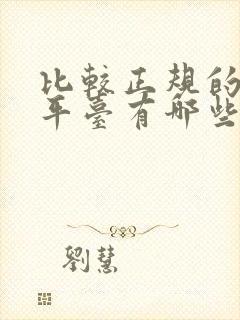 比較正規的
平臺有哪些
劉慧